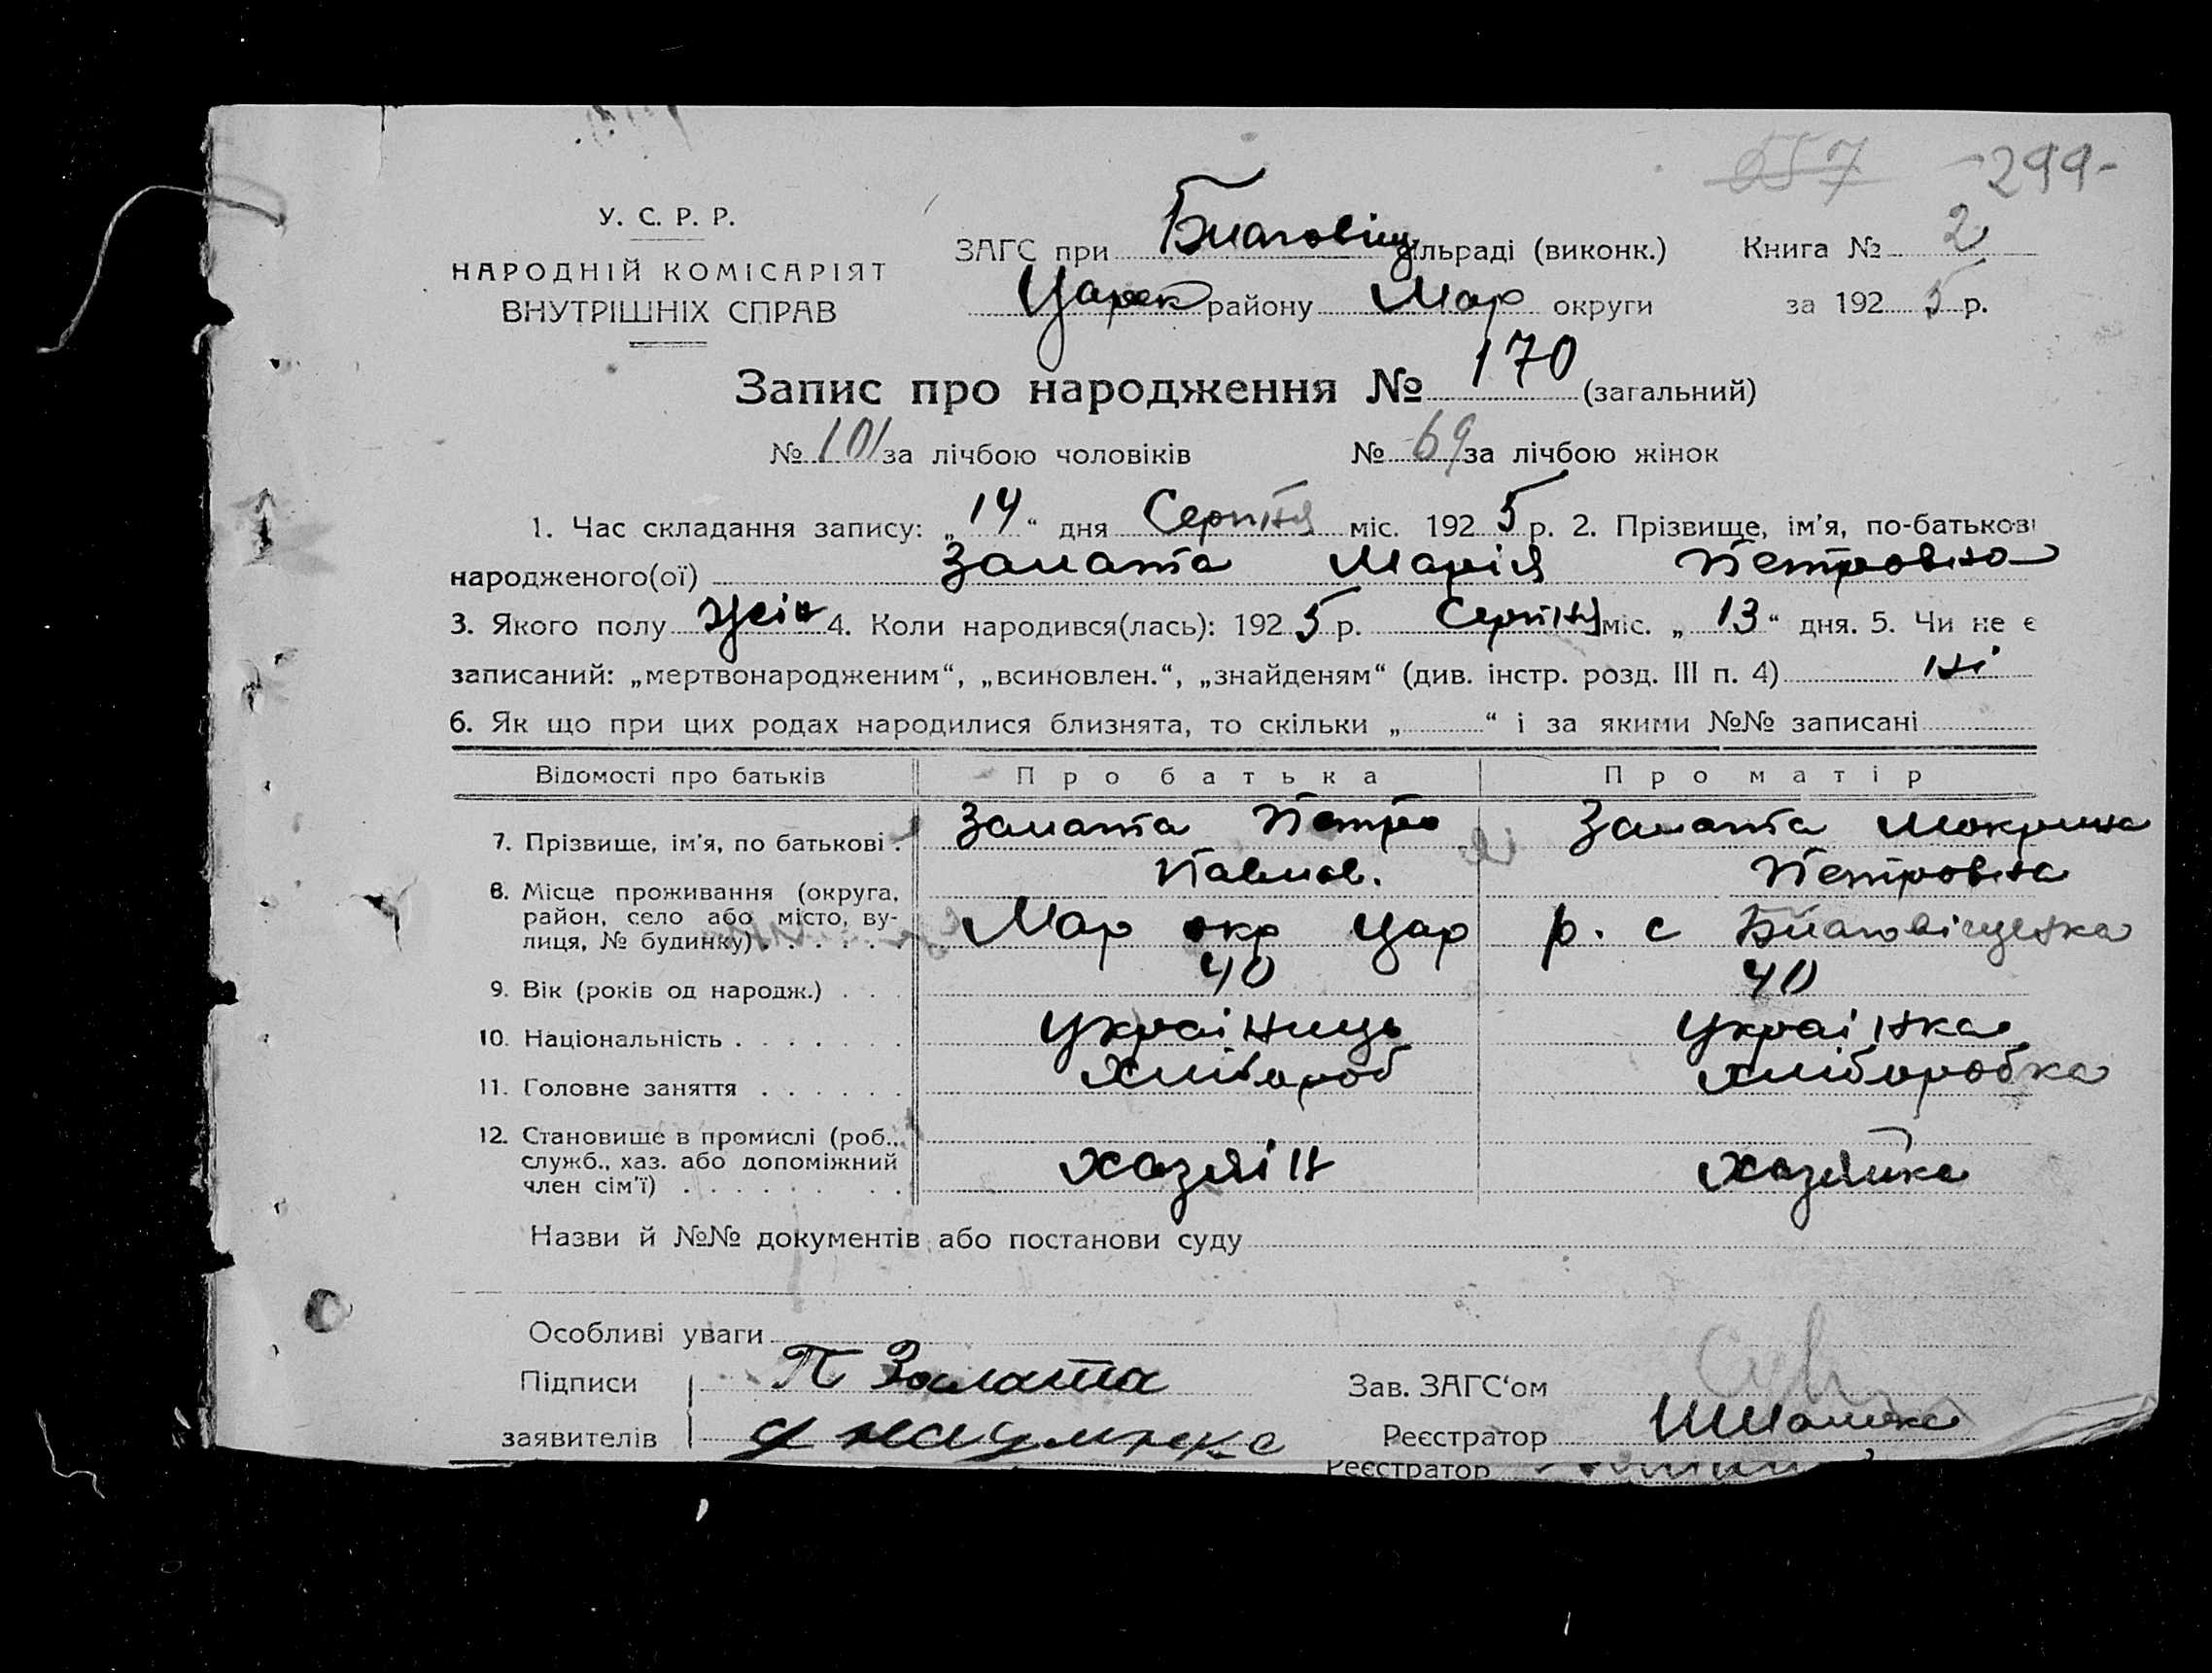 657 -299-
У. С. Р. Р.
НАРОДНІЙ КОМІСАРІЯТ
ВНУТРІШНІХ СПРАВ
ЗАГС при Благовіщ сільраді (виконк.) Книга № 2
Царек району Мар округи за 1925 р.
Запис про народження № 170 (загальний)
№ 101 за лічбою чоловіків № 69 за лічбою жінок
1. Час складання запису: „14“ дня Серпня міс. 1925 р. 2. Прізвище, ім'я, по-батькові
народженого(ої) Залата Марія Петровна
3. Якого полу жін 4. Коли народився(лась): 1925 р. Серпня міс. „13“ дня. 5. Чи не є
записаний: „мертвонародженим“, „всиновлен.“, „знайденям“ (див. інстр. розд. III п. 4) ні
6. Як що при цих родах народилися близнята, то скільки „ “ і за якими №№ записані
Відомості про батьків Про батька Про матір
7. Прізвище, ім'я, по батькові . Залата Петро Павлов. Залата Мокрина Петровна
8. Місце проживання (округа, район, село або місто, вулиця, № будинку) . . . . . . Мар окр Цар р. с Благовіщенка
9. Вік (років од народж.) . . . 40 40
10. Національність . . . . . . . Україниць Українка
11. Головне заняття . . . . . . Хлібороб хліборобка
12. Становище в промислі (роб., служб., хаз. або допоміжний член сім'ї) . . . . . . . . хазяїн хазяйка
Назви й №№ документів або постанови суду
Особливі уваги
Підписи П Залата Зав. ЗАГС'ом
заявителів Реєстратор
Реєстратор